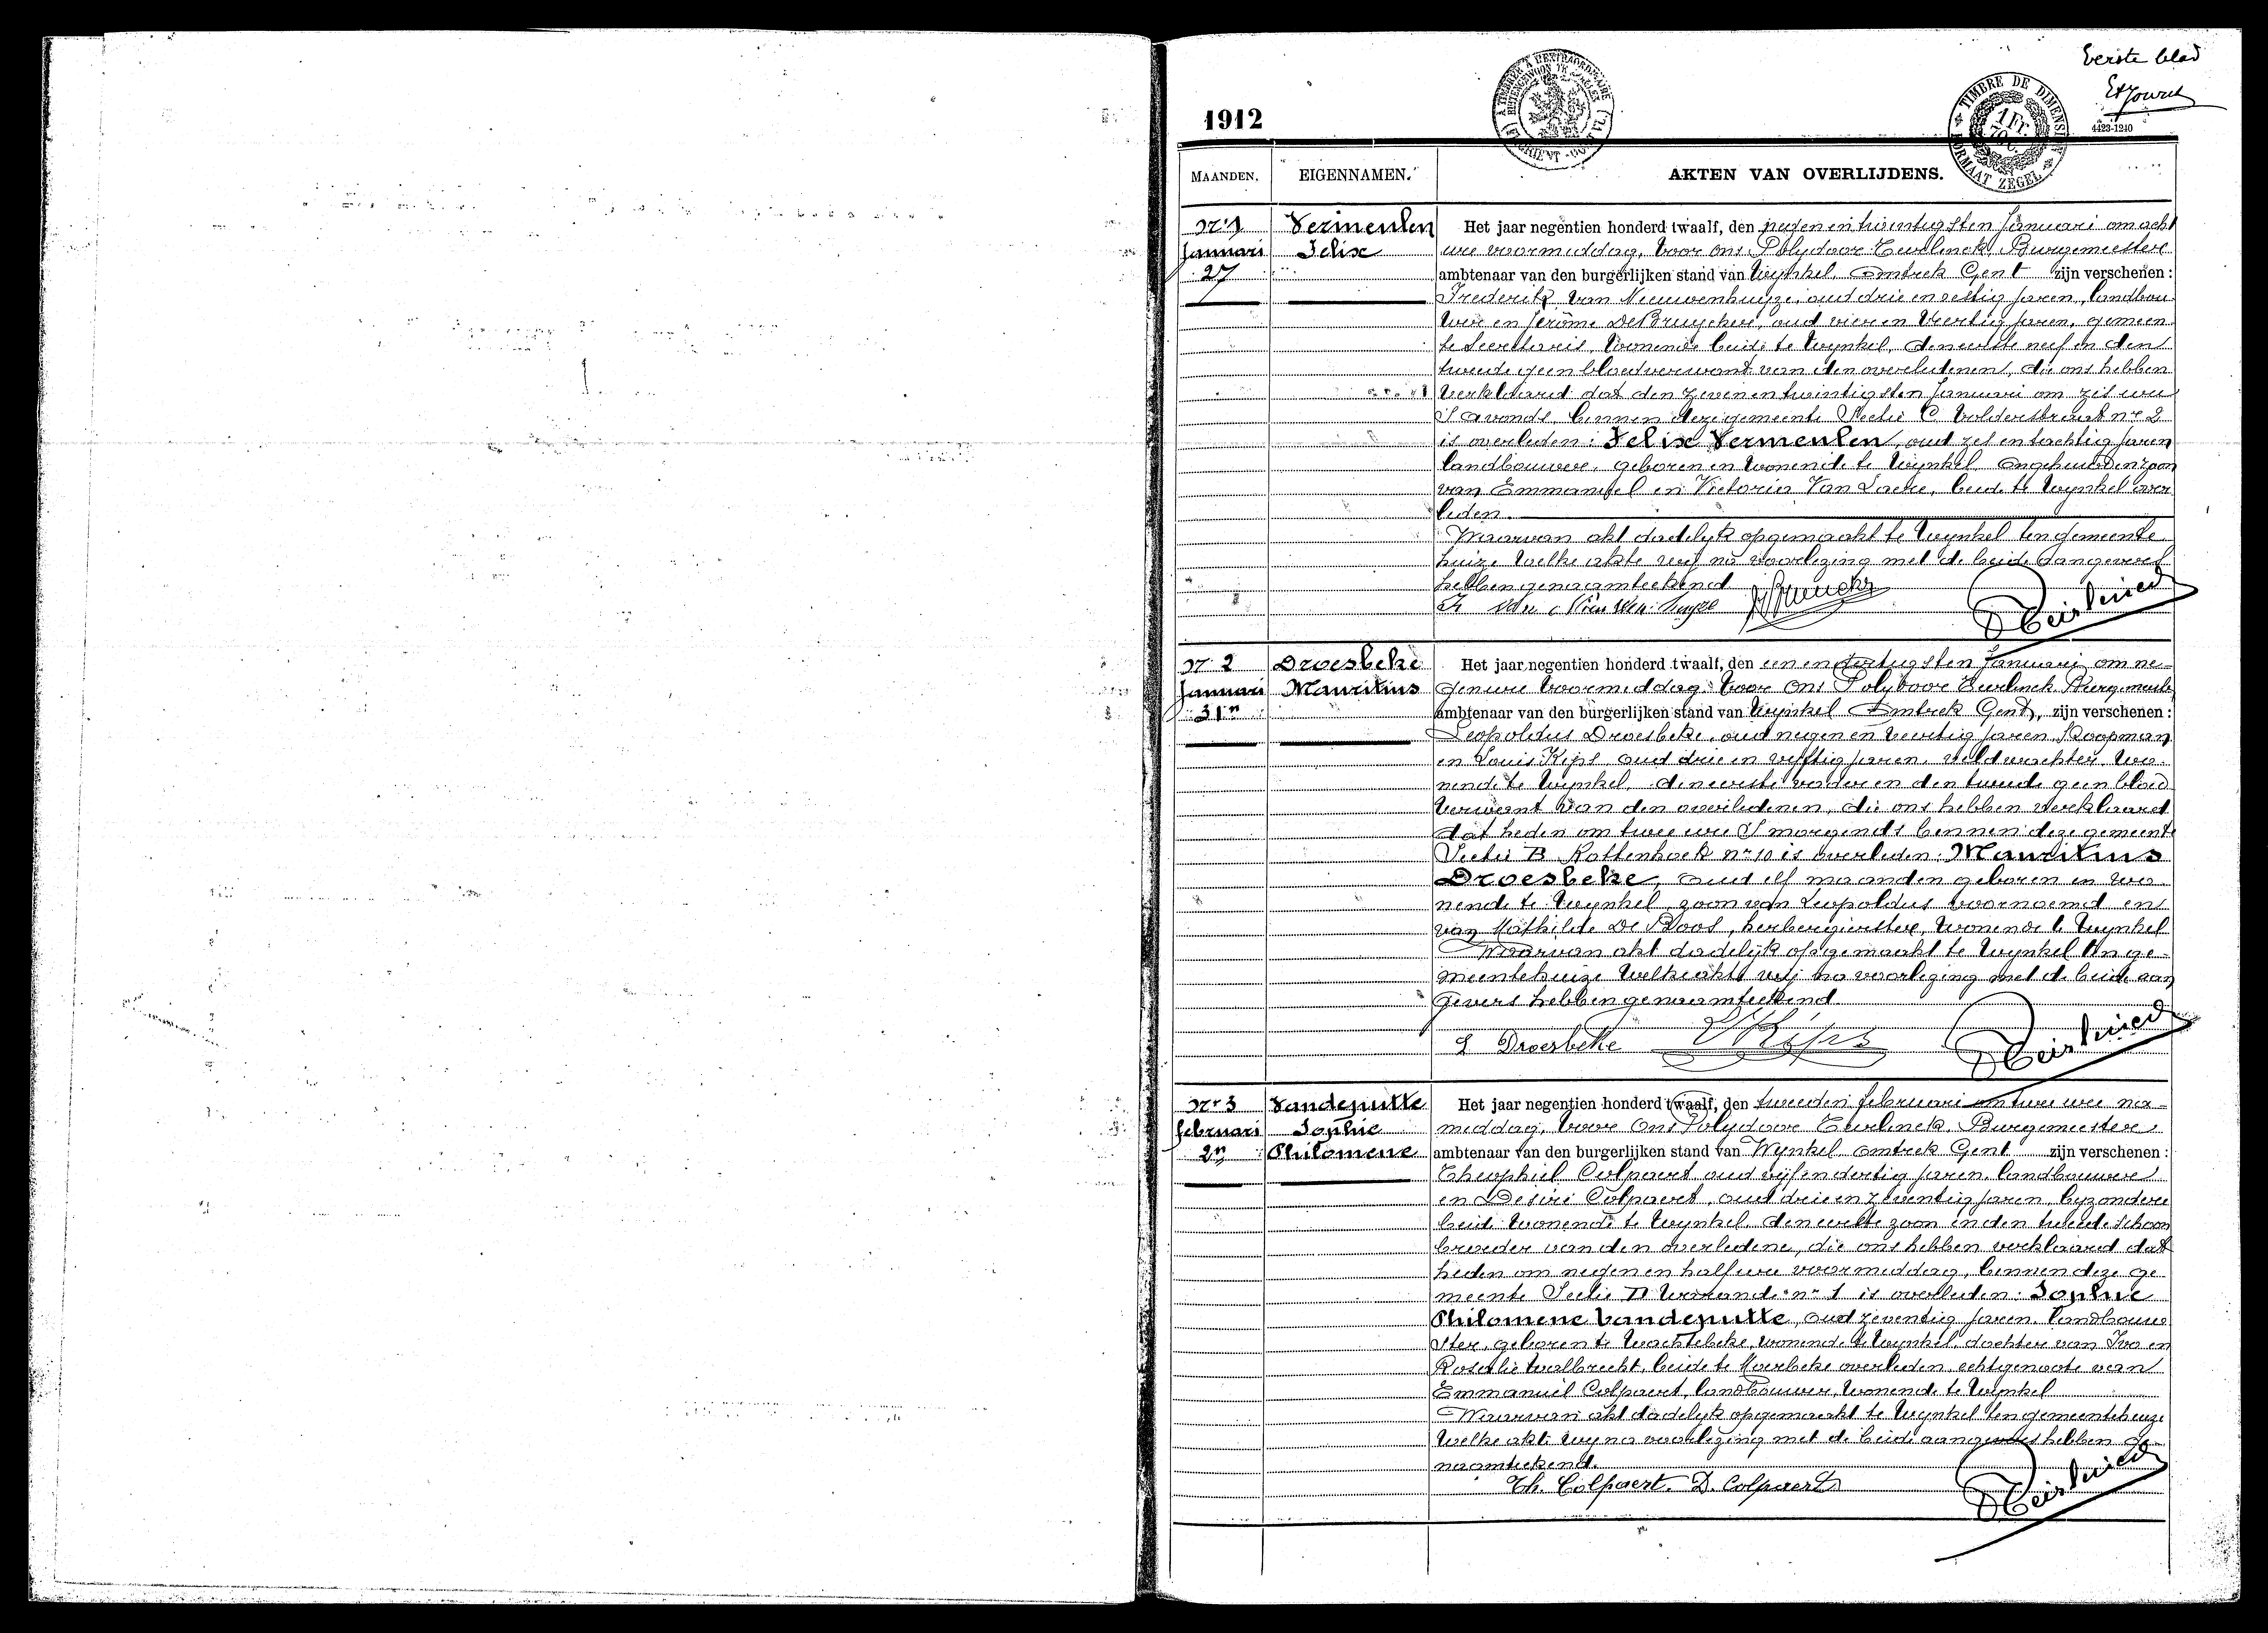 Eerste blad
1912
4423-1240
TIMBRE DE DIMENSION
1 Fr.
FORMAAT ZEGEL
MAANDEN.
EIGENNAMEN.
AKTEN VAN OVERLIJDENS.
Nr 1
Januari
27
Vermeulen
Felix
Het jaar negentien honderd twaalf, den negen en twintigsten Januari om acht
ure voormiddag, voor ons Polydoor Teirlinck Burgemeester
ambtenaar van den burgerlijken stand van Wynkel, omtrek Gent zijn verschenen:
Frederik Van Nieuwenhuyze, oud drie en sestig jaren, landbou
wer en Jerôme De Bruycker, oud vier en veertig jaren, gemeen
te secretaris, wonende beide te Wynkel, den eerste neef en den
tweede geen bloedverwant van den overledenen, die ons hebben
verklaard dat den zeven en twintigsten Januari om zes ure
'S avonds binnen deze gemeente Sectie C Volderstraat nr 2
is overleden: Felix Vermeulen, oud zes en tachtig jaren
landbouwer, geboren en wonende te Wynkel ongehuwden zoon
van Emmanuel en Victoria Van Laere, beide te Wynkel over
leden.
Waarvan akt dadelyk opgemaakt te Wynkel ten gemeente
huize welke akte wij na voorlezing met de beide aangevers
hebben genaamteekend
Nr 2
Januari
31n
Droesbeke
Mauritius
Het jaar negentien honderd twaalf, den een en dertigsten Januari om ne-
gen ure voormiddag voor ons Polydoor Teirlinck Burgemeester
ambtenaar van den burgerlijken stand van Wynkel Omtrek Gent, zijn verschenen:
Leopoldus Droesbeke, oud negen en veertig jaren Koopman
en Louis Kips oud drie en vyftig jaren, veldwachter, wo-
nende te Wynkel, den eerste vader en den tweede geen bloed
verwant van den overledenen, die ons hebben verklaard
dat heden om twee ure 'S morgends binnen deze gemeente
Sectie B Rattenhoek nr 10 is overleden: Mauritius
Droesbeke, oud elf maanden geboren en wo-
nende te Wynkel, zoon van Leopoldus voornoemd en
van Mathilde De Boos, herbergierster, wonende te Wynkel
Waarvan akt dadelijk opgemaakt te Wynkel ten ge-
meentehuize welke akte wij na voorlezing met de beide aan
gevers hebben genaamteekend.
L Droesbeke L Kips
Nr 3
februari
2n
Vandeputte
Sophie
Philomene
Het jaar negentien honderd twaalf, den tweeden februari om twee ure na-
middag, voor Ons Polydoor Teirlinck, Burgemeester
ambtenaar van den burgerlijken stand van Wynkel omtrek Gent zijn verschenen:
Theophiel Colpaert oud vyf en dertig jaren, landbouwer
en Desiré Colpaert, oud drie en zeventig jaren byzondere
beide wonende te Wynkel, den eerste zoon en den tweede schoon
broeder van den overledene, die ons hebben verklaard dat
heden om negen en half ure voormiddag, binnen deze ge
meente Sectie D nr 1 is overleden: Sophie
Philomene Vandeputte, oud zeventig jaren, landbouw
ster, geboren te Wachtebeke, wonende te Wynkel, dochter van Ivo en
Rosalie Walbrecht, beide te Moerbeke overleden, echtgenoote van
Emmanuel Colpaert, landbouwer, wonende te Wynkel
Waarvan akt dadelyk opgemaakt te Wynkel ten gemeentehuize
welke akte wy na voorlezing met de beide aangevers hebben ge-
naamteekend.
Th. Colpaert. D. Colpaert